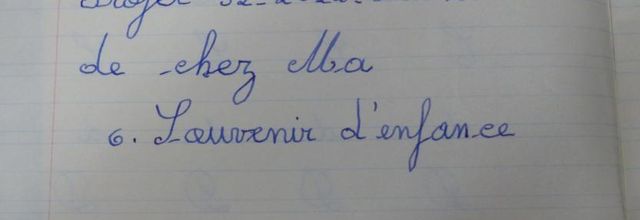 de chez Ma
6. Souvenir d'enfance